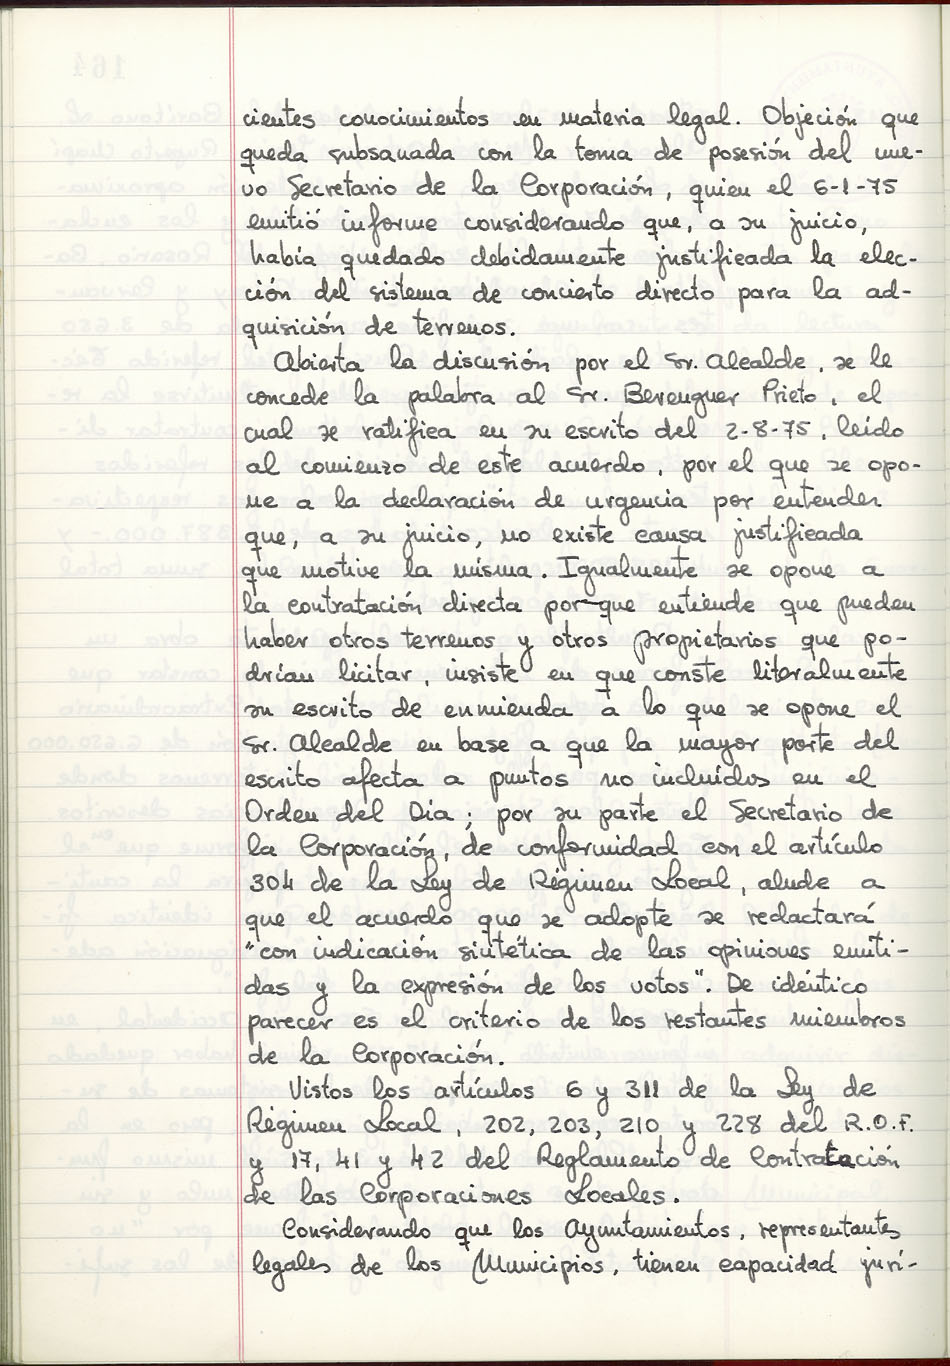 cientes conocimientos en materia legal. Objeción que
queda subsanada con la toma de posesión del nue-
vo Secretario de la Corporación, quien el 6-1-75
emitió informe considerando que, a su juicio,
había quedado debidamente justificada la elec-
ción del sistema de concierto directo para la ad-
quisición de terrenos.
Abierta la discusión por el Sr. Alcalde, se le
concede la palabra al Sr. Berenguer Prieto, el
cual se ratifica en su escrito del 2-8-75, leído
al comienzo de este acuerdo, por el que se opo-
ne a la declaración de urgencia por entender
que, a su juicio, no existe causa justificada
que motive la misma. Igualmente se opone a
la contratación directa por-que entiende que pueden
haber otros terrenos y otros propietarios que po-
drían licitar, insiste en que conste literalmente
su escrito de enmienda a lo que se opone el
Sr. Alcalde en base a que la mayor parte del
escrito afecta a puntos no incluídos en el
Orden del Día; por su parte el Secretario de
la Corporación, de conformidad con el artículo
304 de la Ley de Régimen Local, alude a
que el acuerdo que se adopte se redactará
"con indicación sintética de las opiniones emiti-
das y la expresión de los votos". De idéntico
parecer es el criterio de los restantes miembros
de la Corporación.
Vistos los artículos 6 y 311 de la Ley de
Régimen Local, 202, 203, 210 y 228 del R.O.F.
y 17, 41 y 42 del Reglamento de Contratación
de las Corporaciones Locales.
Considerando que los Ayuntamientos, representantes
legales de los Municipios, tienen capacidad jurí-